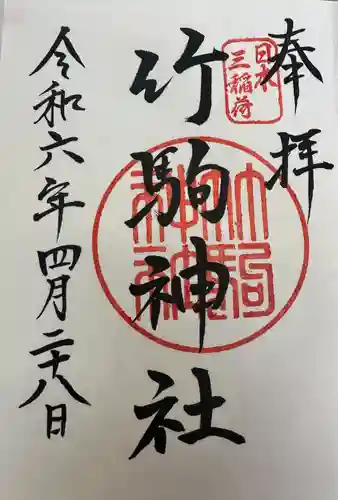 奉拝
日本
三稲荷
竹駒神社
令和六年四月二十八日